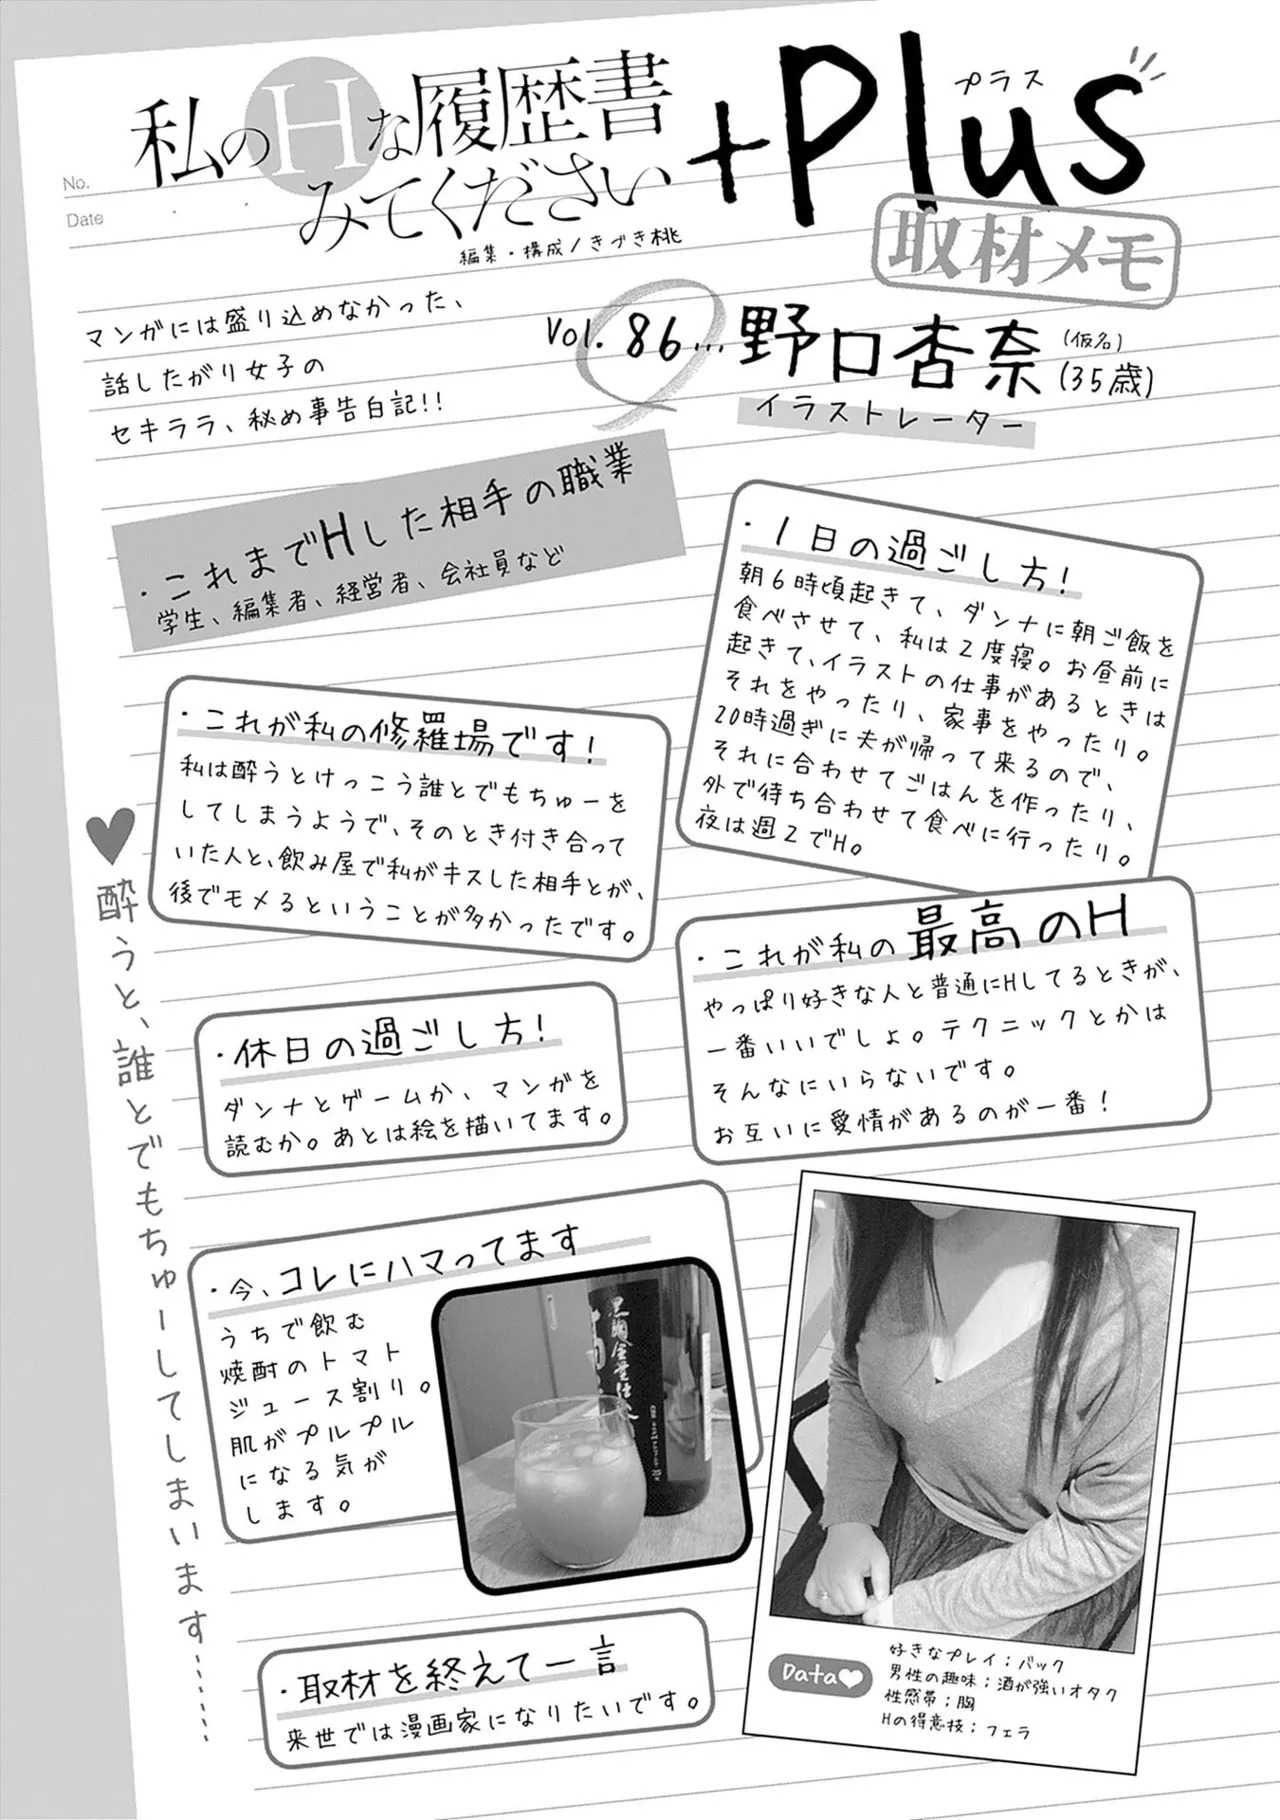 No.
Date
私のHな履歴書
みてください
+Plus
プラス
取材メモ
編集・構成/きづき桃
マンガには盛り込めなかった、
話したがり女子の
セキララ、秘め事告白記!!
Vol.86…野口杏奈(仮名)(35歳)
イラストレーター
・これまでHした相手の職業
学生、編集者、経営者、会社員など
・1日の過ごし方!
朝6時頃起きて、ダンナに朝ご飯を
食べさせて、私は2度寝。お昼前に
起きて、イラストの仕事があるときは
それをやったり、家事をやったり。
20時過ぎに夫が帰って来るので、
それに合わせてごはんを作ったり、
外で待ち合わせて食べに行ったり。
夜は週2でH。
・これが私の修羅場です!
私は酔うとけっこう誰とでもちゅーを
してしまうようで、そのとき付き合って
いた人と、飲み屋で私がキスした相手とが、
後でモメるということが多かったです。
・これが私の最高のH
やっぱり好きな人と普通にHしてるときが、
一番いいでしょ。テクニックとかは
そんなにいらないです。
お互いに愛情があるのが一番!
・休日の過ごし方!
ダンナとゲームか、マンガを
読むか。あとは絵を描いてます。
・今、コレにハマってます
うちで飲む
焼酎のトマト
ジュース割り。
肌がプルプル
になる気が
します。
♥酔うと、誰とでもちゅーしてしまいます……
・取材を終えて一言
来世では漫画家になりたいです。
Data♥
好きなプレイ;バック
男性の趣味;酒が強いオタク
性感帯;胸
Hの得意技;フェラ